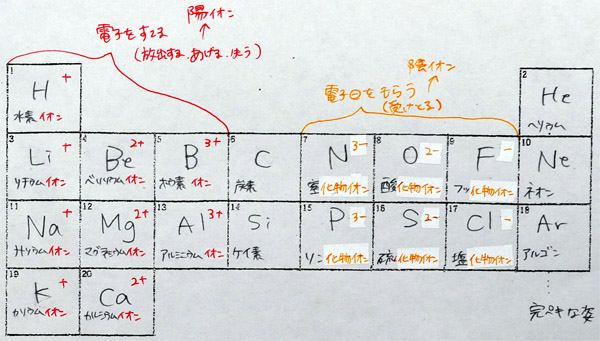 陽イオン
電子をすてる
(放出する、あげる、失う)
陰イオン
電子⊖をもらう
(受けとる)
1 H + 水素イオン
2 He ヘリウム
3 Li + リチウムイオン
4 Be 2+ ベリリウムイオン
5 B 3+ ホウ素イオン
6 C 炭素
7 N 3- 窒化物イオン
8 O 2- 酸化物イオン
9 F - フッ化物イオン
10 Ne ネオン
11 Na + ナトリウムイオン
12 Mg 2+ マグネシウムイオン
13 Al 3+ アルミニウムイオン
14 Si ケイ素
15 P 3- リン化物イオン
16 S 2- 硫化物イオン
17 Cl - 塩化物イオン
18 Ar アルゴン
19 K + カリウムイオン
20 Ca 2+ カルシウムイオン
完ペキな姿